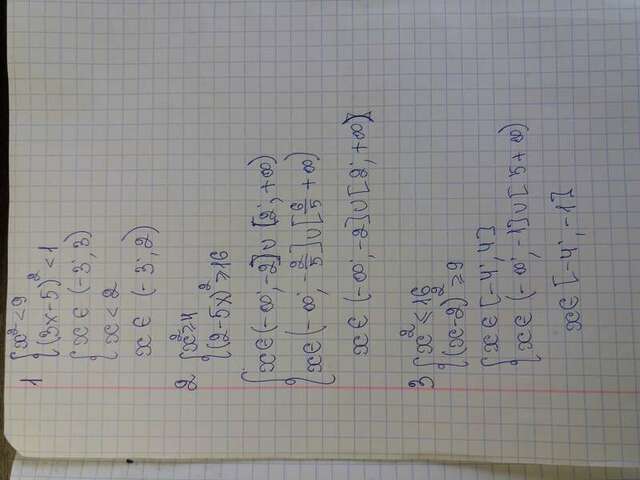 1 { x² < 9
(3x-5)² < 1
{ x ∈ (-3; 3)
x < 2
x ∈ (-3; 2)
2 { x² ≥ 4
(2-5x)² ≥ 16
{ x ∈ (-∞; -2] ∪ [2; +∞)
x ∈ (-∞; -2/5] ∪ [6/5 +∞)
x ∈ (-∞; -2] ∪ [2; +∞)
3 { x² ≤ 16
(x-2)² ≥ 9
{ x ∈ [-4; 4]
x ∈ (-∞; -1] ∪ [5 +∞)
x ∈ [-4; -1]